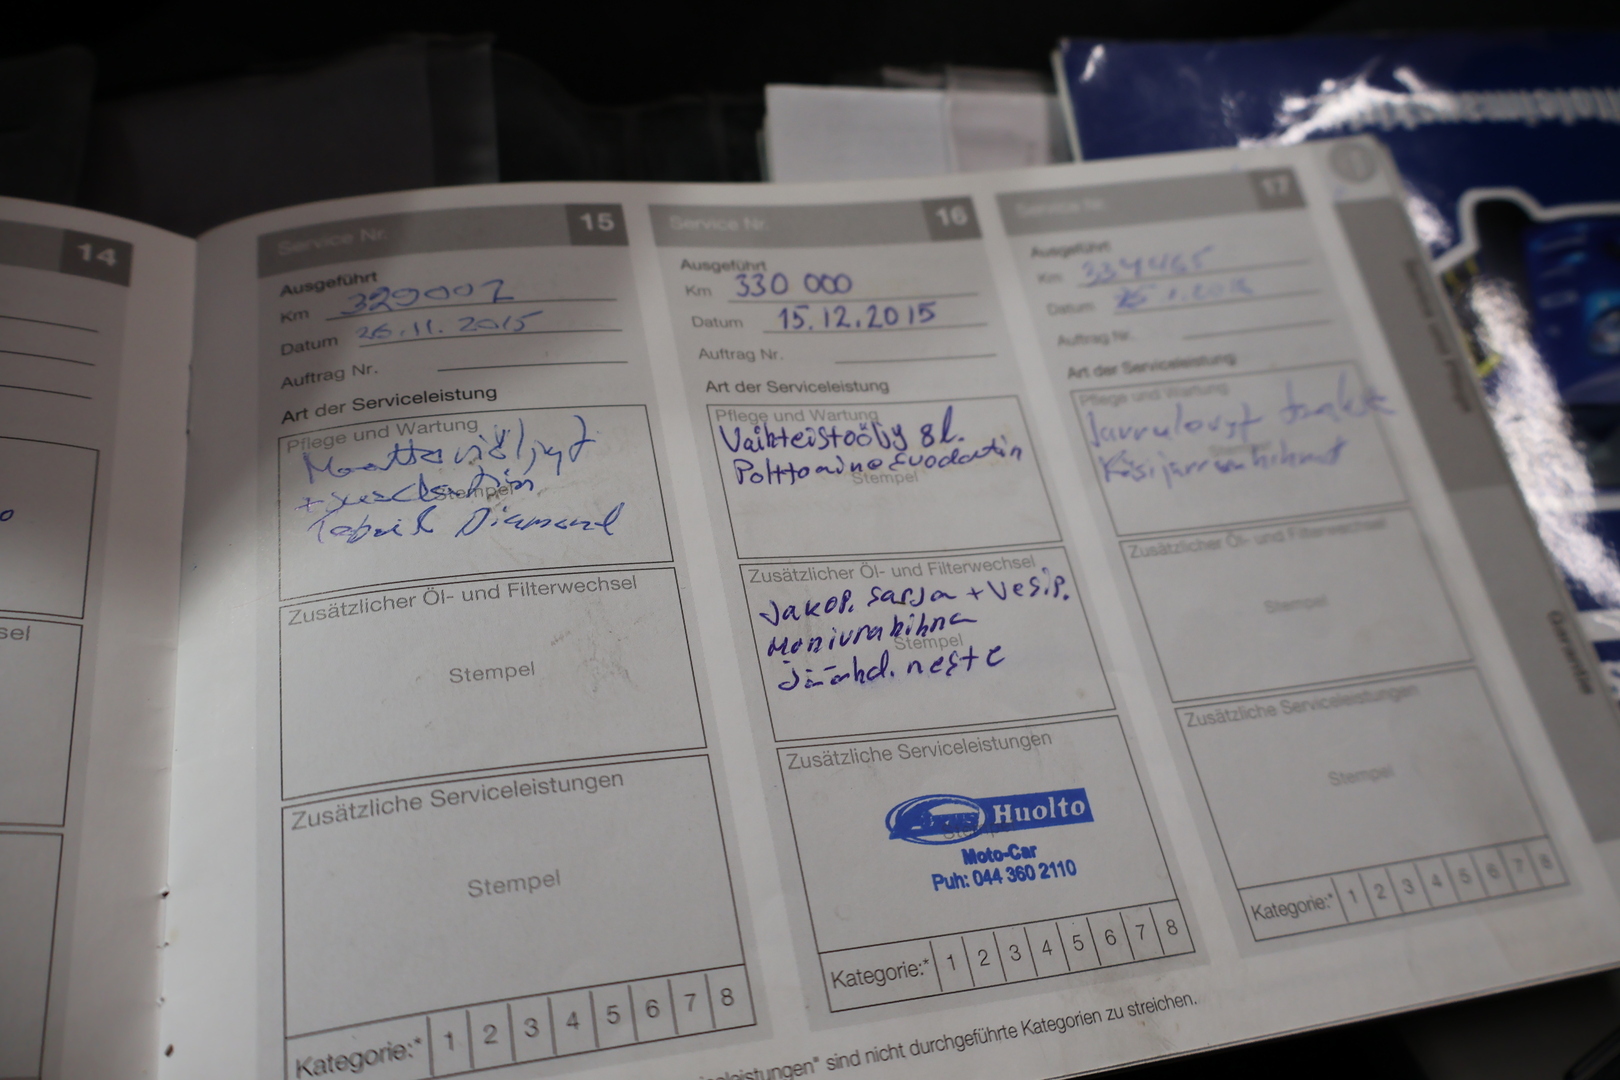 14
sel
Service Nr. 15
Ausgeführt
Km 329002
Datum 26.11.2015
Auftrag Nr.
Art der Serviceleistung
Pflege und Wartung
Moottoriöljyt
Stempel
Diamand
Zusätzlicher Öl- und Filterwechsel
Stempel
Zusätzliche Serviceleistungen
Stempel
Kategorie:* 1 2 3 4 5 6 7 8
Service Nr. 16
Ausgeführt
Km 330 000
Datum 15.12.2015
Auftrag Nr.
Art der Serviceleistung
Pflege und Wartung
Vaihteistoöljy 8l.
Polttoaine suodatin
Stempel
Zusätzlicher Öl- und Filterwechsel
Jakop. sarja + Vesip.
Moniurahihna
Stempel
Jäähd. neste
Zusätzliche Serviceleistungen
Huolto
Moto-Car
Puh: 044 360 2110
Kategorie:* 1 2 3 4 5 6 7 8
Service Nr. 17
Ausgeführt
Km 334465
Datum
Auftrag Nr.
Art der Serviceleistung
Pflege und Wartung
Jarrulevyt
Stempel
Käsijarrun hihnat
Zusätzlicher Öl- und Filterwechsel
Stempel
Zusätzliche Serviceleistungen
Stempel
Kategorie:* 1 2 3 4 5 6 7 8
Garantie
sind nicht durchgeführte Kategorien zu streichen.